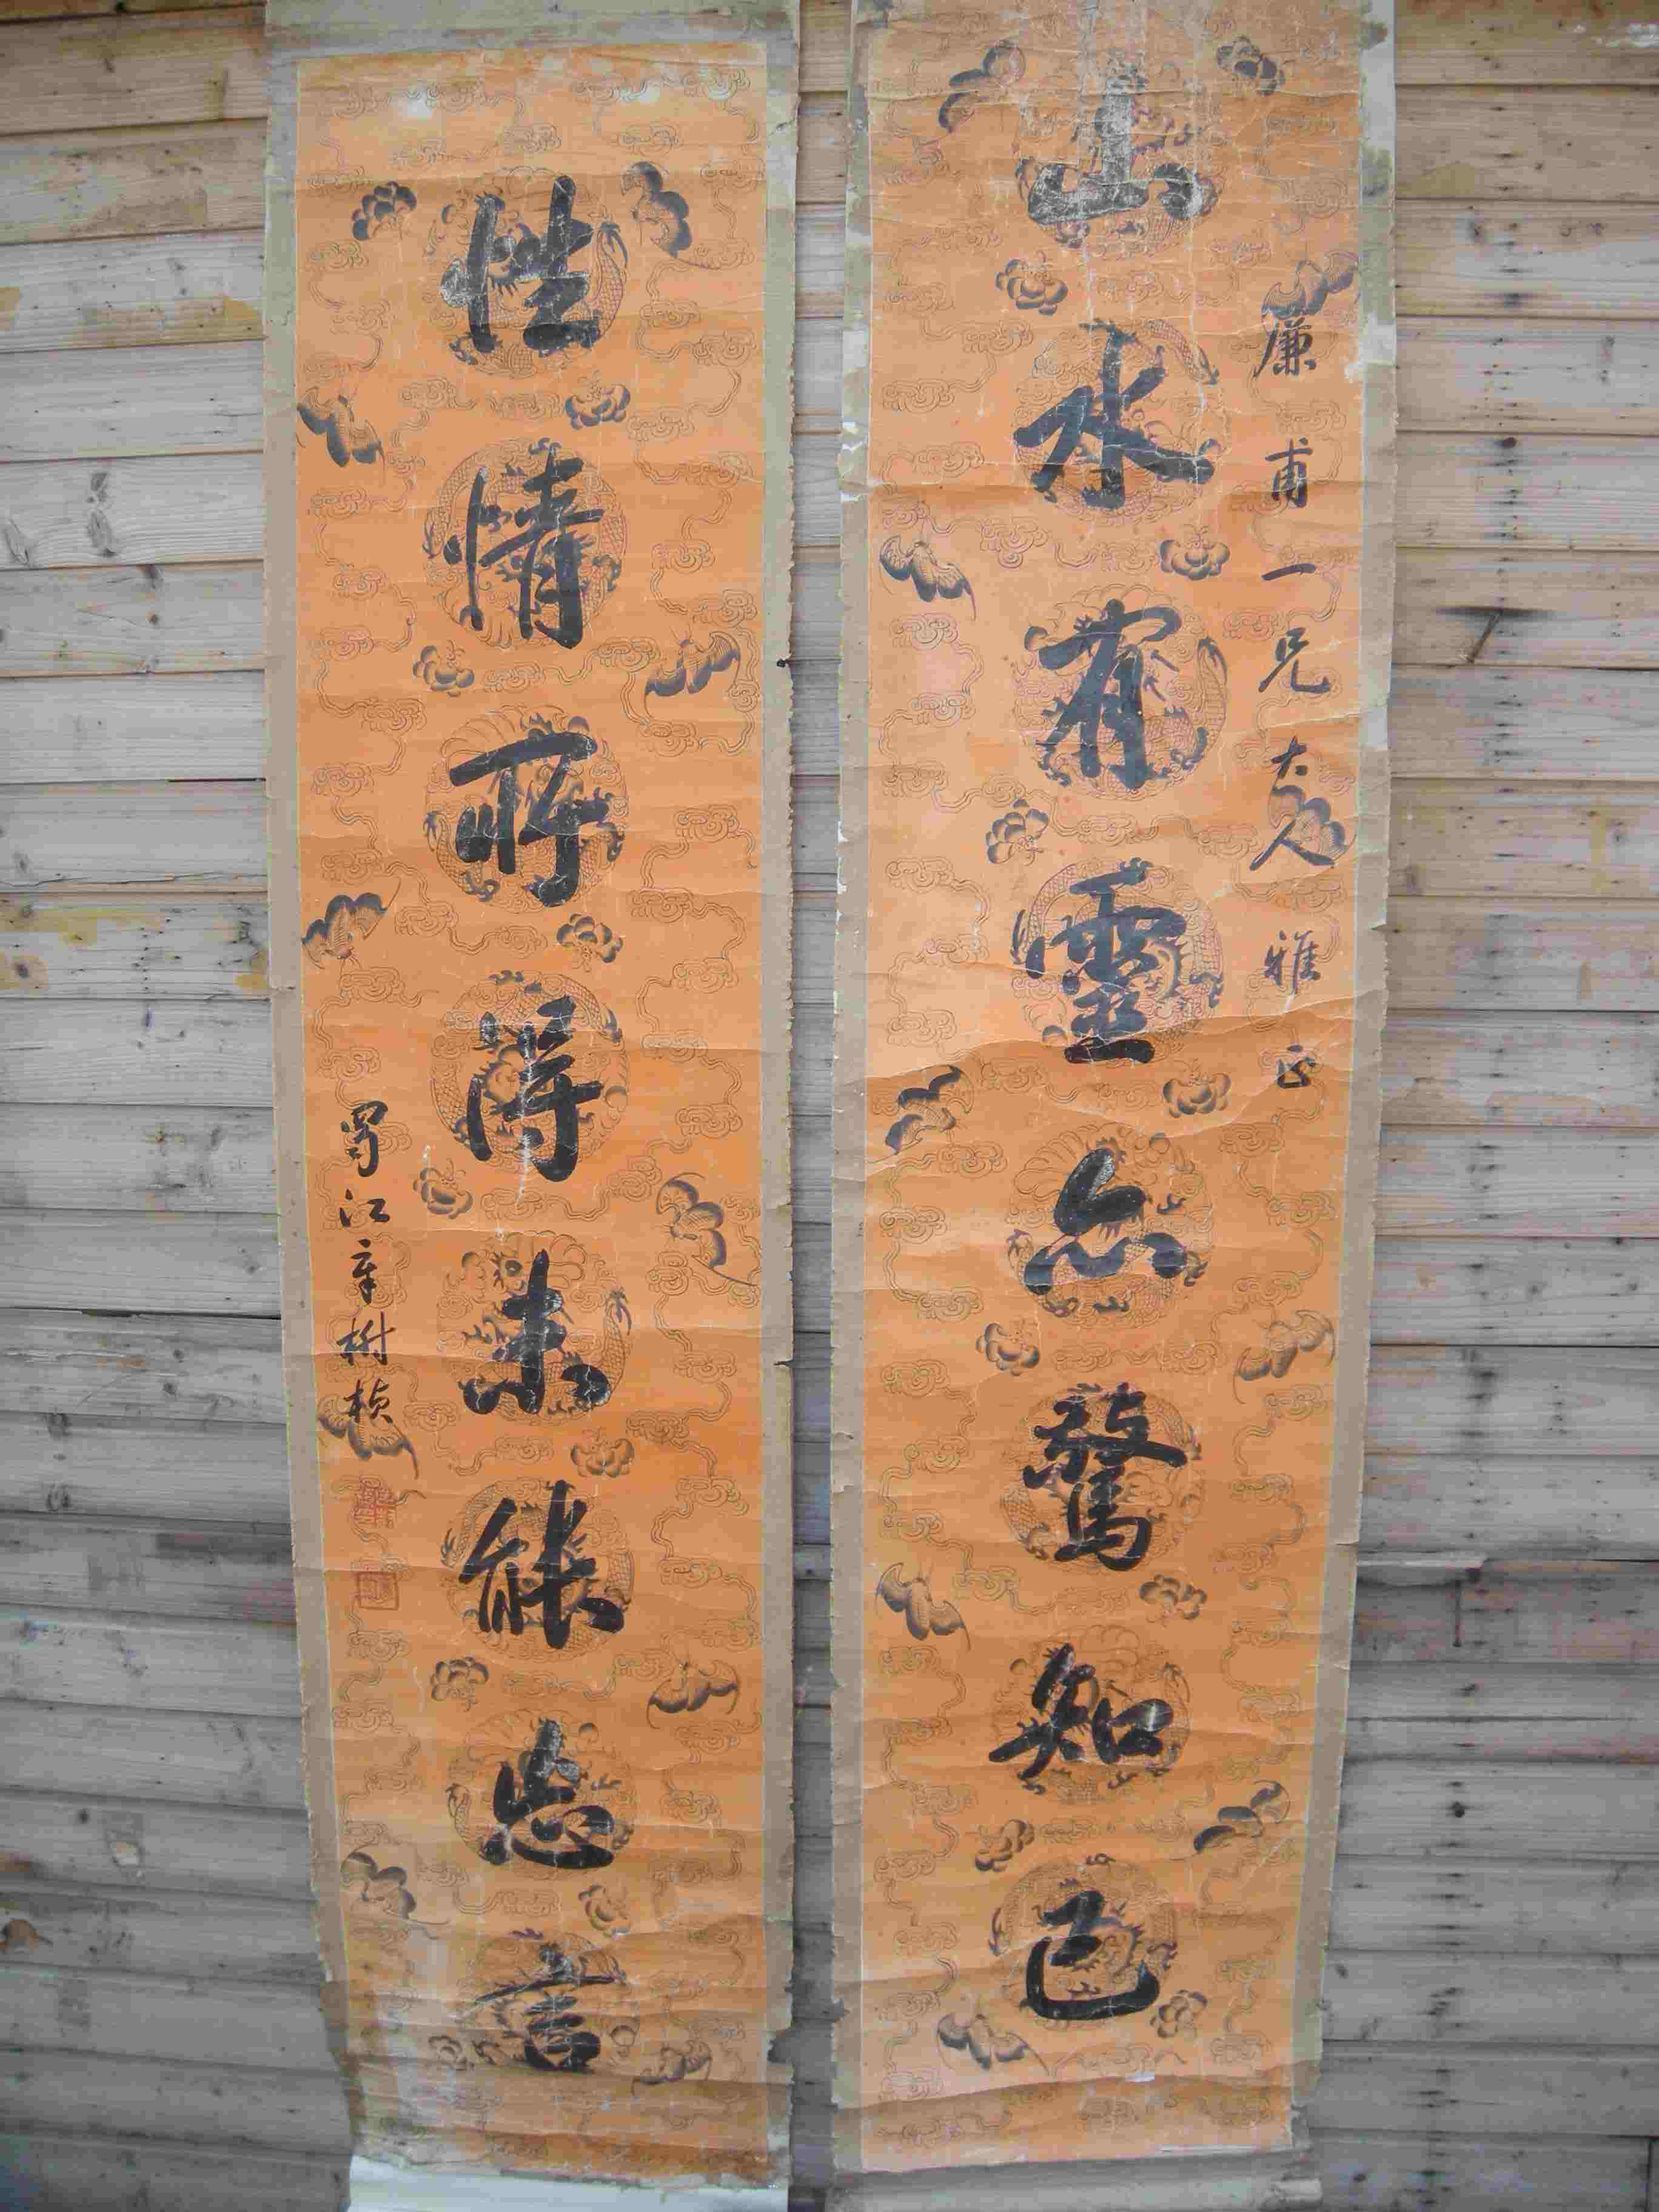 廉甫一兄大人雅正
山水有靈亦驚知己
性情所得未能忘言
蜀江辛樹楨